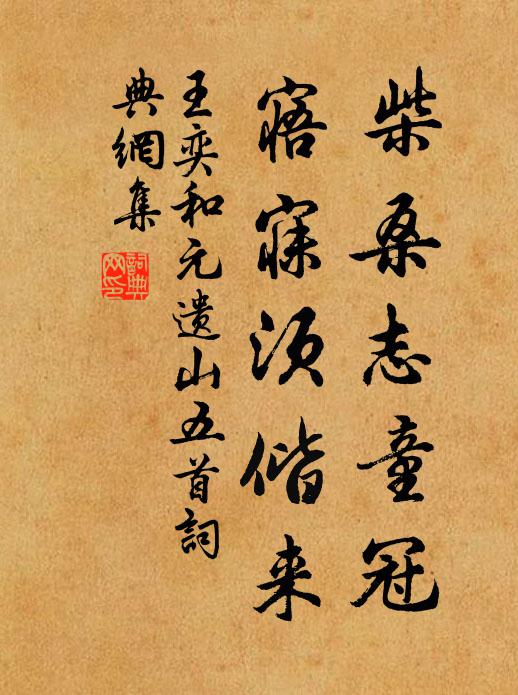 柴桑志童冠
寤寐须偕来
王奕和元遗山五首詞
典網集
詞典網印